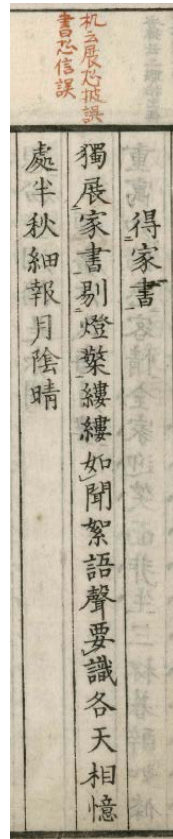 机云展恐披誤
書恐信誤
得家書
獨展家書剔燈檠縷縷如聞絮語聲要識各天相憶
處半秋細報月陰晴